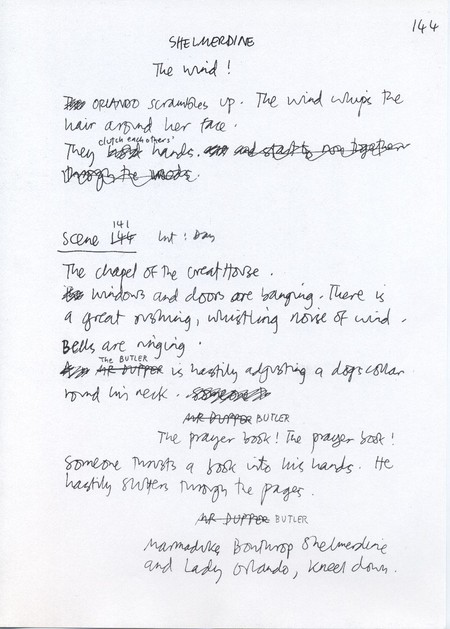 144
SHELMERDINE
The wind!
ORLANDO scrambles up. The wind whips the
hair around her face.
clutch each others'
They hold hands. and start to run together
through the woods.
141
Scene 144 Int: Day
The chapel of the Great House.
windows and doors are banging. There is
a great rushing, whistling noise of wind.
Bells are ringing.
The BUTLER
MR DUPPER is hastily adjusting a dogs collar
round his neck. Someone
MR DUPPER BUTLER
The prayer book! The prayer book!
Someone thrusts a book into his hands. He
hastily flutters through the pages.
MR DUPPER BUTLER
Marmaduke Bonthrop Shelmerdine
and Lady Orlando, kneel down.